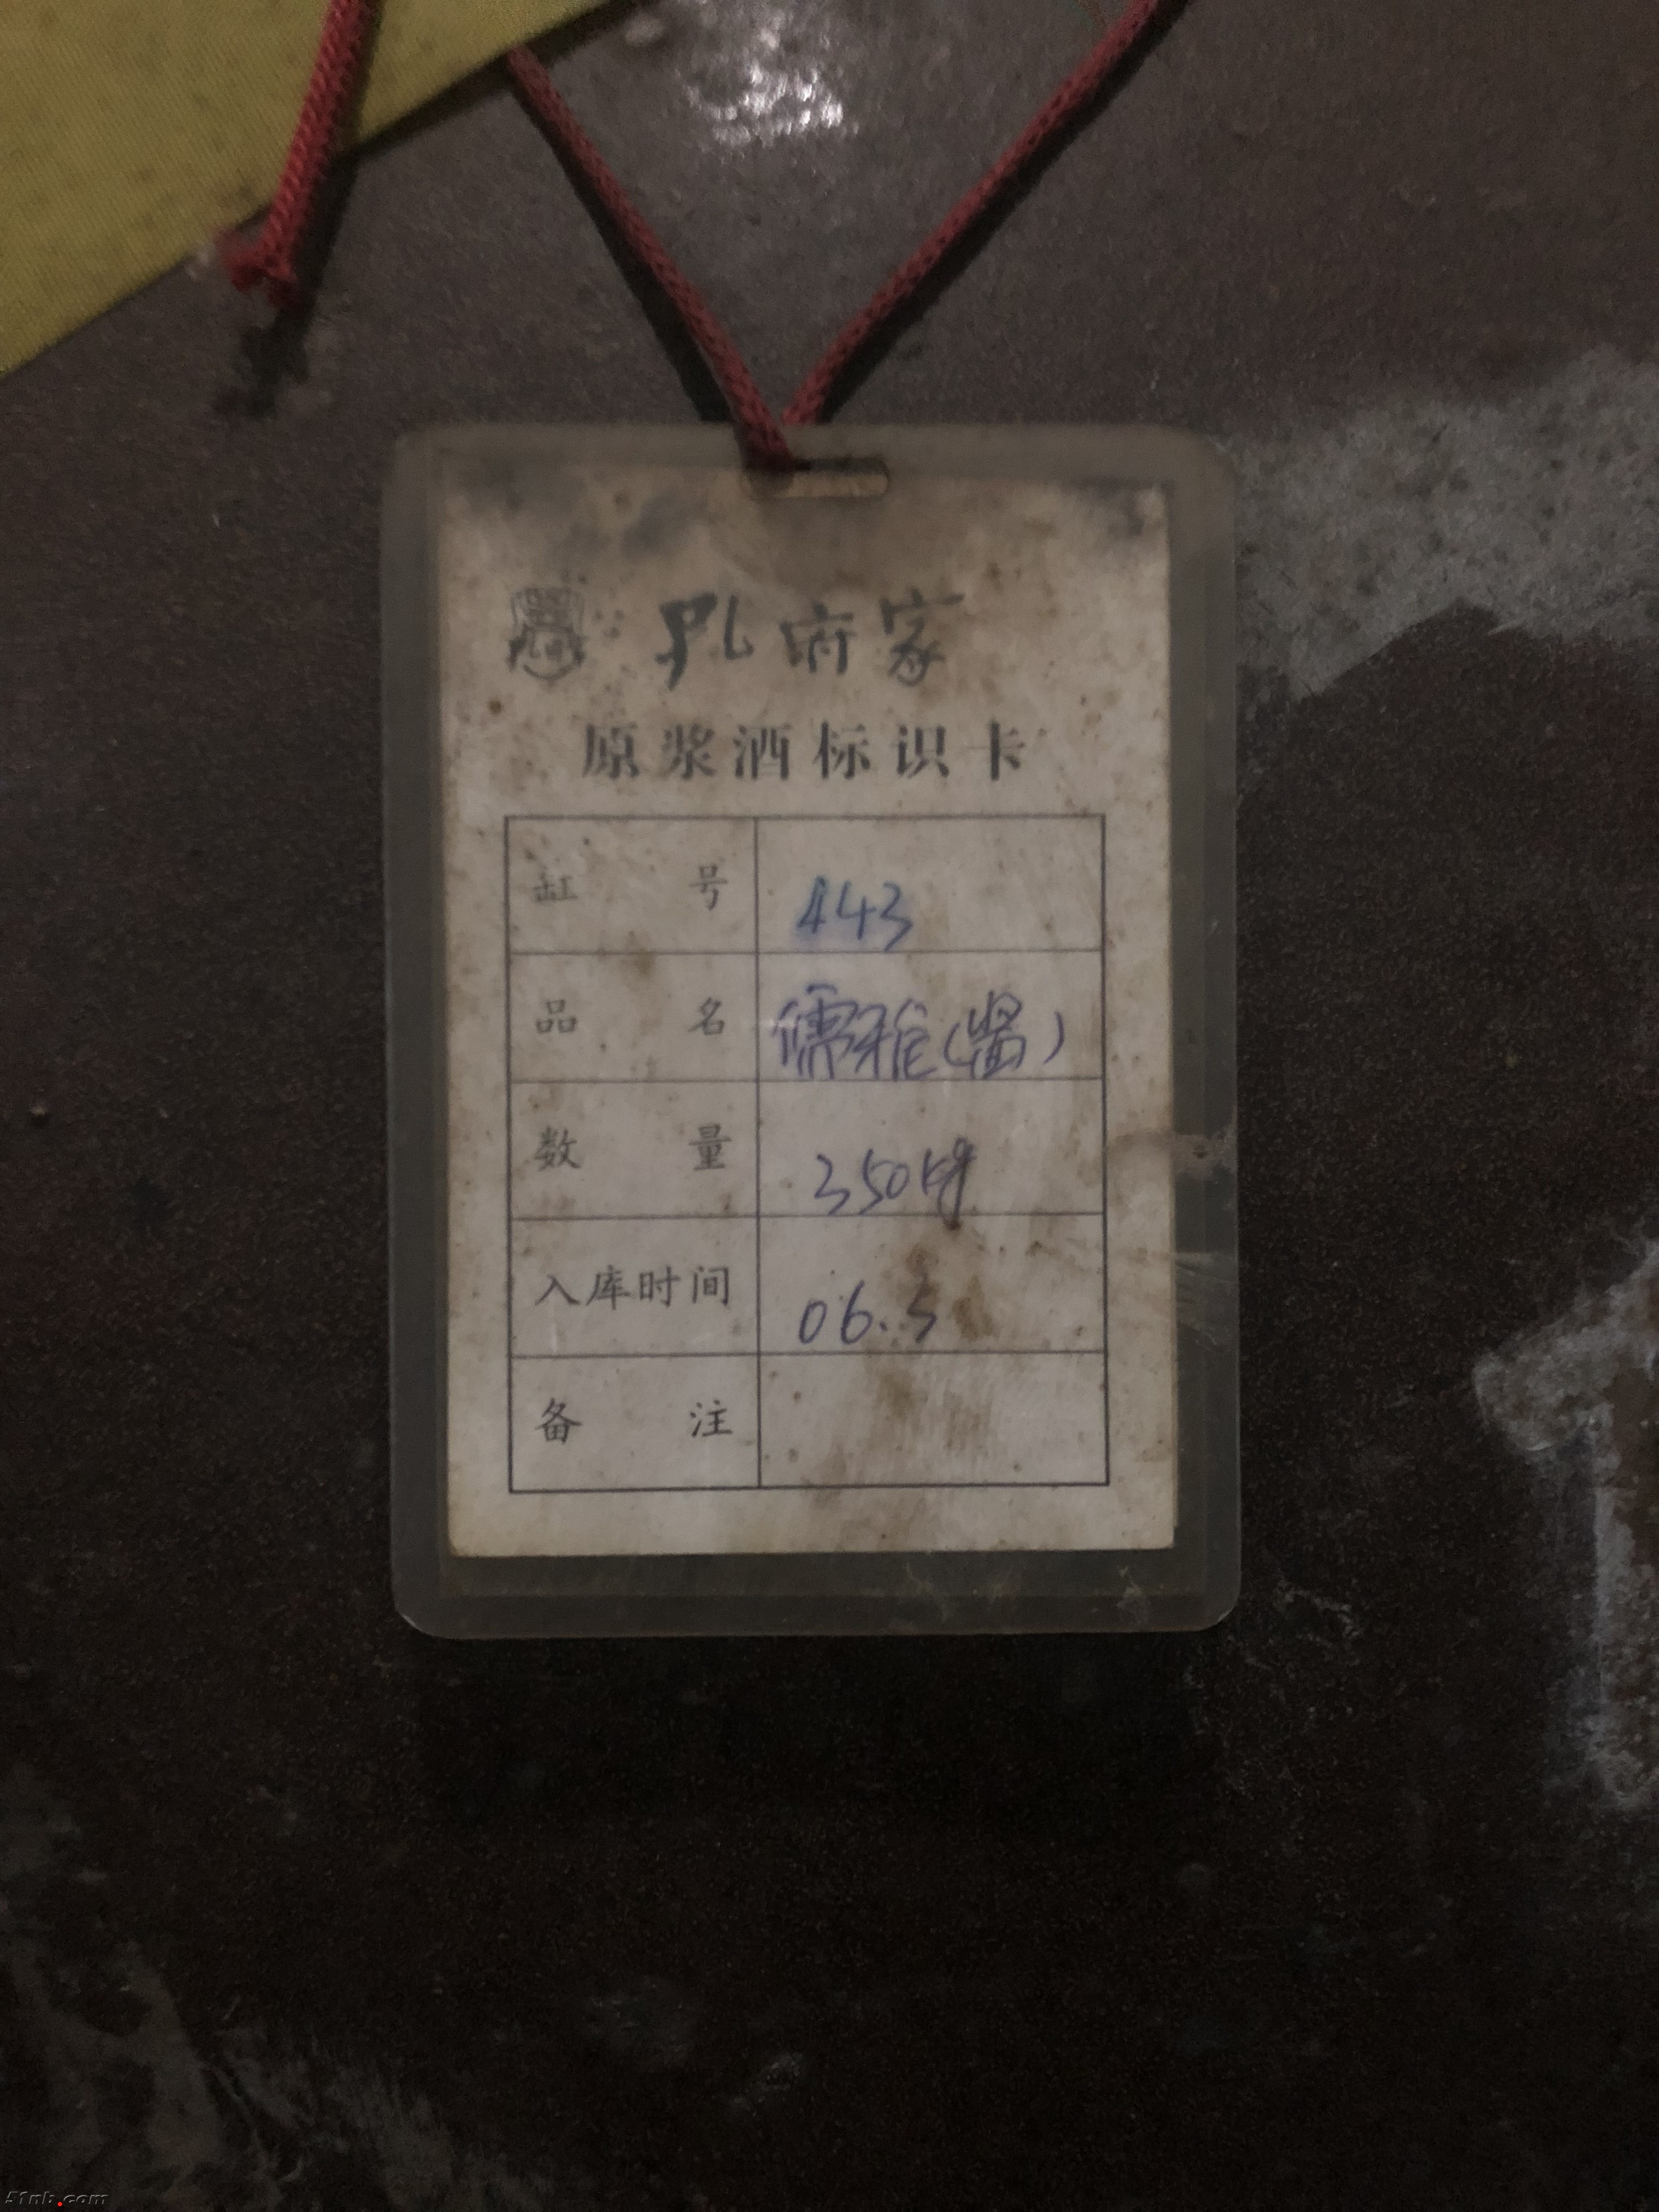 孔府家
原浆酒标识卡
缸号 443
品名 儒雅(酱)
数量 350
入库时间 06.3
备注
51nb.com